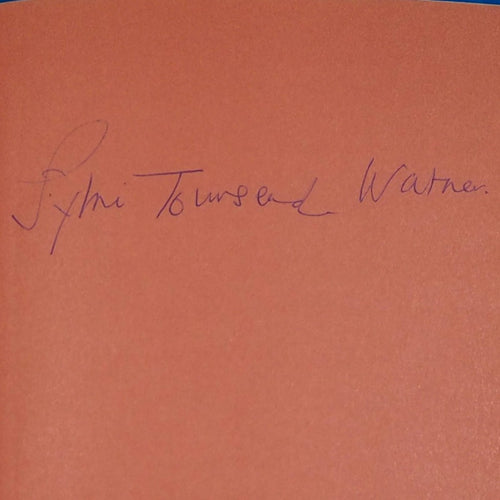 Sylvia Townsend Warner.